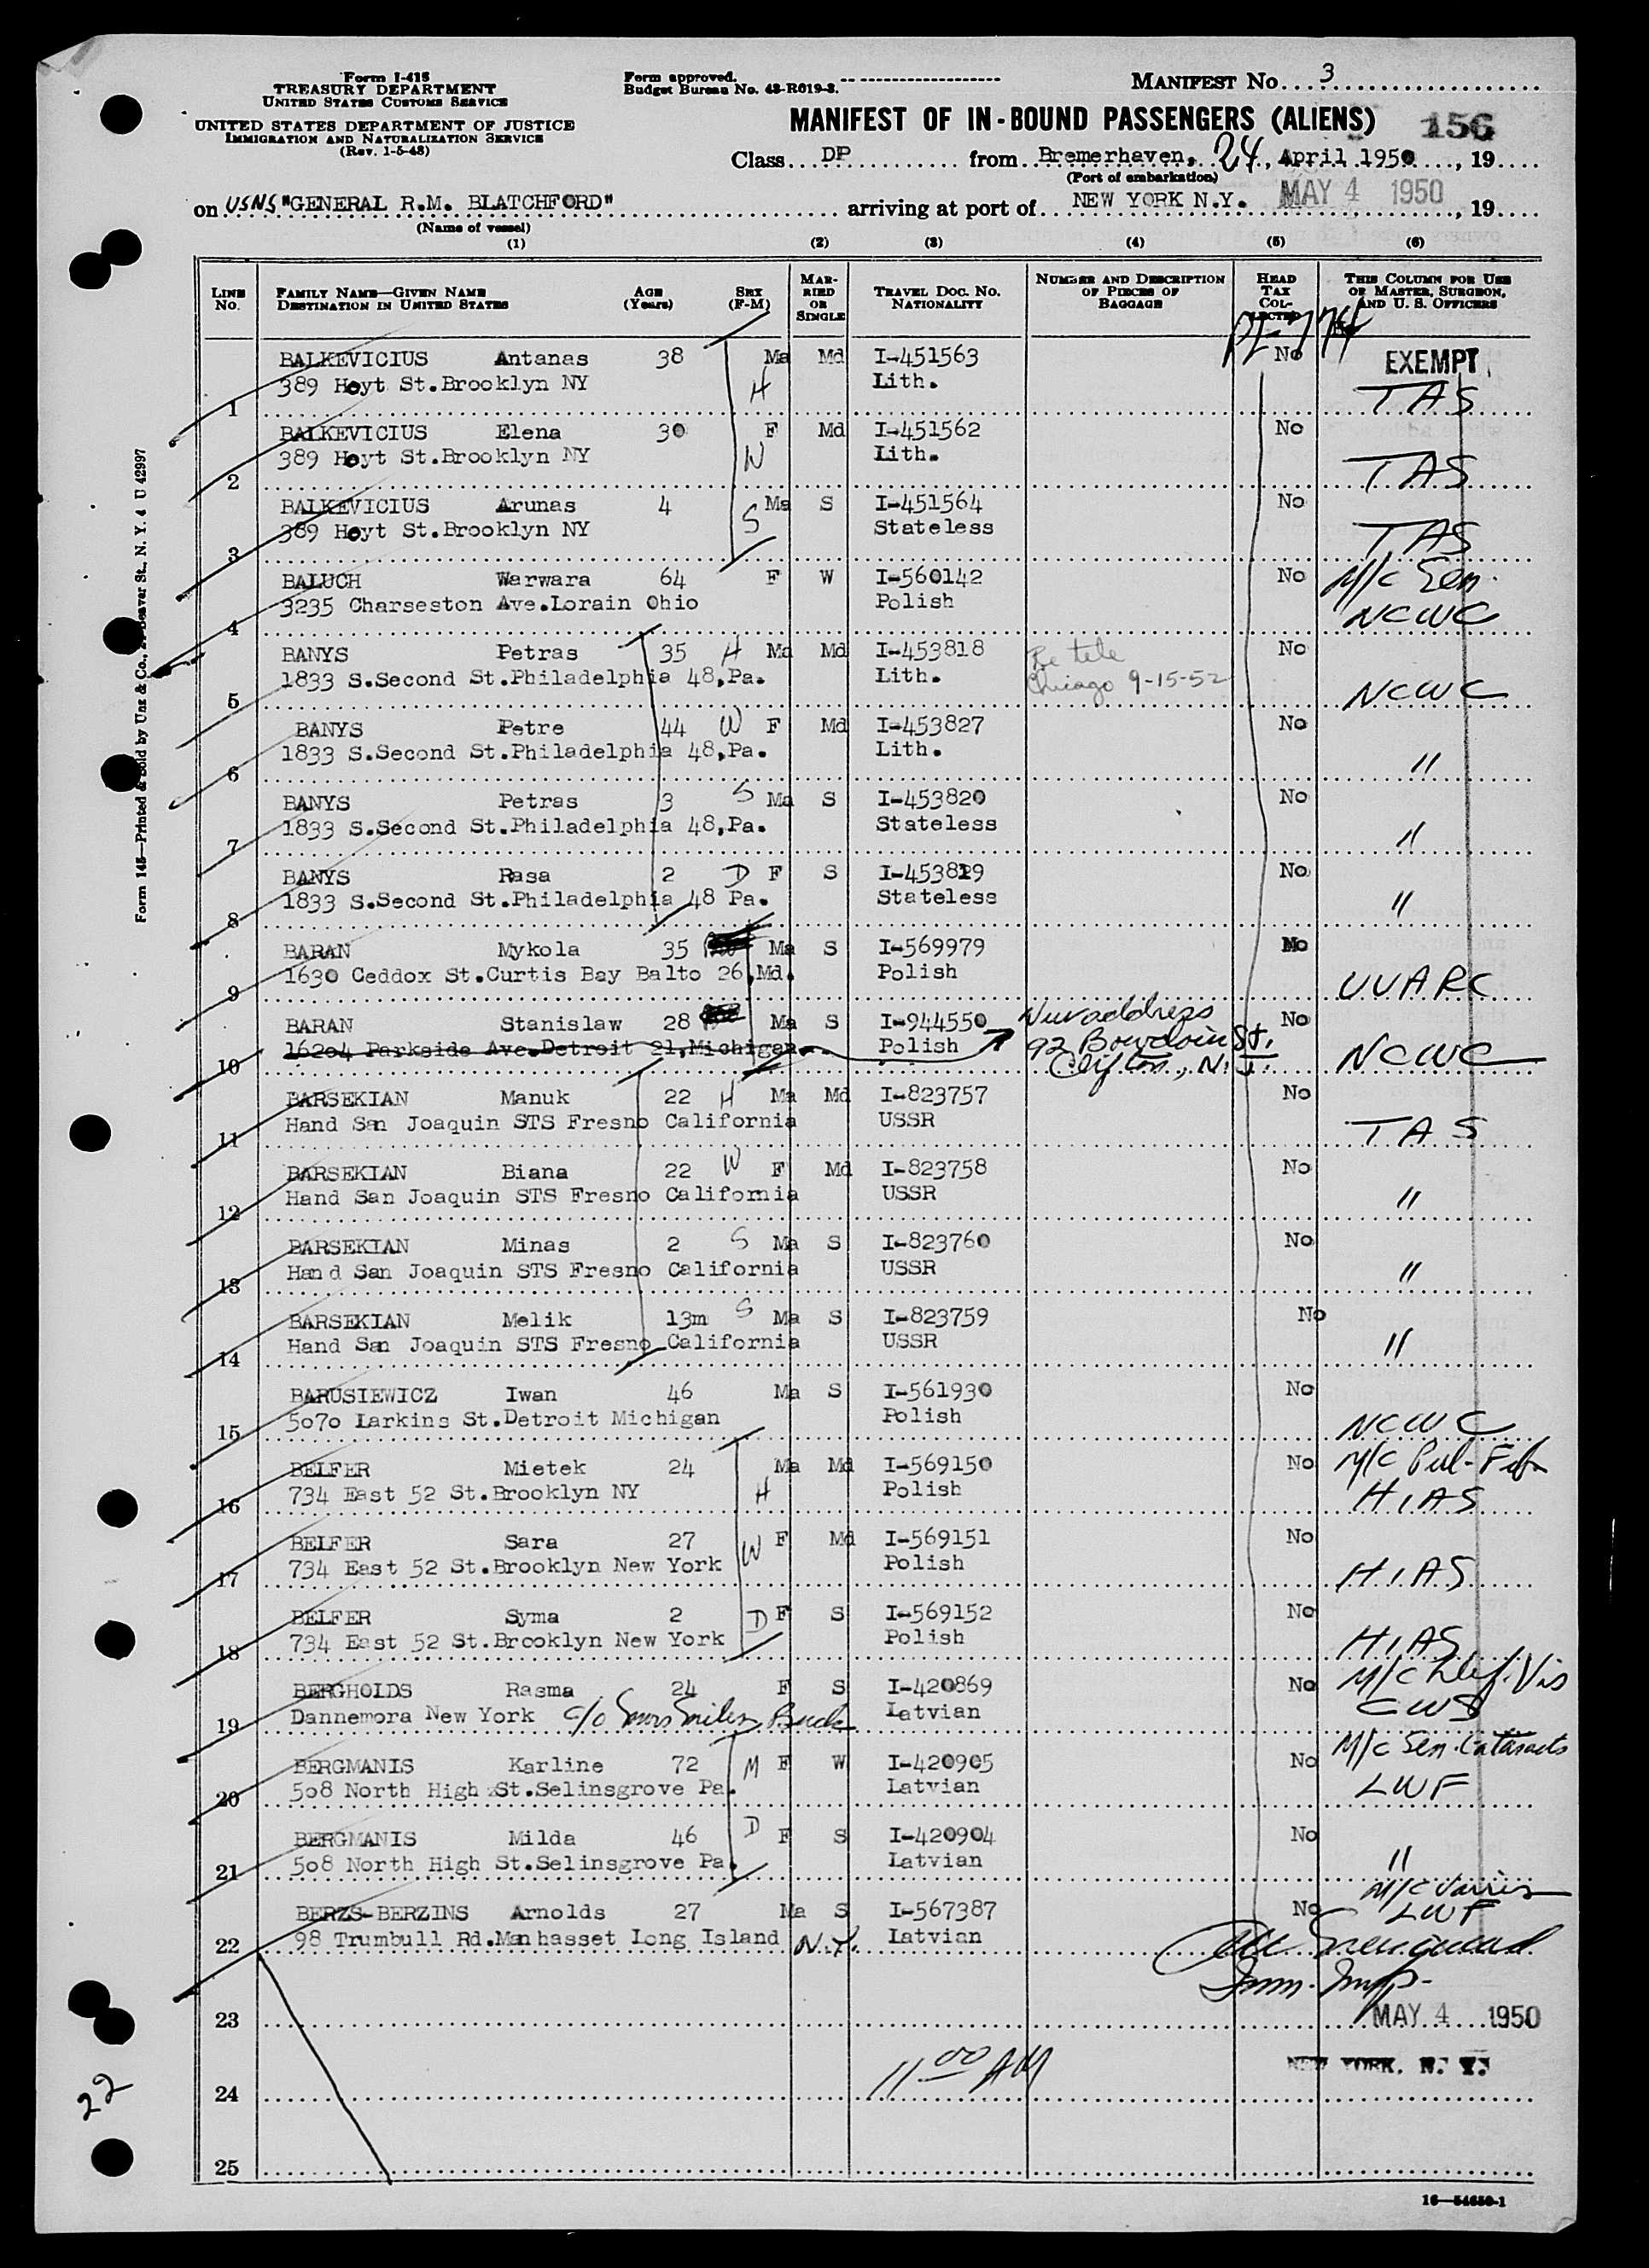 Form I-418
TREASURY DEPARTMENT
UNITED STATES CUSTOMS SERVICE
UNITED STATES DEPARTMENT OF JUSTICE
IMMIGRATION AND NATURALIZATION SERVICE
(Rev. 1-5-48)
Form approved.
Budget Bureau No. 43-R019-3.
MANIFEST No. 3
MANIFEST OF IN-BOUND PASSENGERS (ALIENS) 156
Class DP from Bremerhaven, 24, April 1950, 19
(Port of embarkation)
on USNS "GENERAL R.M. BLATCHFORD" arriving at port of NEW YORK N.Y. MAY 4 1950, 19
(Name of vessel)
(1) (2) (3) (4) (5) (6)
LINE No. FAMILY NAME—GIVEN NAME DESTINATION IN UNITED STATES AGE (Years) SEX (F-M) MARRIED OR SINGLE TRAVEL DOC. NO. NATIONALITY NUMBER AND DESCRIPTION OF PIECES OF BAGGAGE HEAD TAX COLLECTED THIS COLUMN FOR USE OF MASTER, SURGEON, AND U. S. OFFICERS
PL-774
BALKEVICIUS Antanas 38 Ma Md I-451563 No EXEMPT
1 389 Hoyt St.Brooklyn NY H Lith. TAS
BALKEVICIUS Elena 30 F Md I-451562 No
2 389 Hoyt St.Brooklyn NY W Lith. TAS
BALKEVICIUS Arunas 4 Ma S I-451564 No
3 389 Hoyt St.Brooklyn NY S Stateless TAS
BALUCH Warwara 64 F W I-560142 No M/C Sen.
4 3235 Charseston Ave.Lorain Ohio Polish NCWC
BANYS Petras 35 H Md Md I-453818 Re tele No
5 1833 S.Second St.Philadelphia 48,Pa. Lith. Chicago 9-15-52 NCWC
BANYS Petre 44 W F Md I-453827 No
6 1833 S.Second St.Philadelphia 48,Pa. Lith. "
BANYS Petras 3 S Ma S I-453820 No
7 1833 S.Second St.Philadelphia 48,Pa. Stateless "
BANYS Rasa 2 D F S I-453819 No
8 1833 S.Second St.Philadelphia 48 Pa. Stateless "
BARAN Mykola 35 Ma S I-569979 No
9 1630 Ceddox St.Curtis Bay Balto 26,Md. Polish UUARC
BARAN Stanislaw 28 Ma S I-944550 New address No
10 16204 Parkside Ave.Detroit 21,Michigan. Polish 92 Bowdoin St. Clifton, N.J. NCWC
BARSEKIAN Manuk 22 H Ma Md I-823757 No
11 Hand San Joaquin STS Fresno California USSR TAS
BARSEKIAN Biana 22 W F Md I-823758 No
12 Hand San Joaquin STS Fresno California USSR "
BARSEKIAN Minas 2 S Ma S I-823760 No
13 Hand San Joaquin STS Fresno California USSR "
BARSEKIAN Melik 13m S Ma S I-823759 No
14 Hand San Joaquin STS Fresno California USSR "
BARUSIEWICZ Iwan 46 Ma S I-561930 No
15 5070 Larkins St.Detroit Michigan Polish NCWC
BELFER Mietek 24 Ma Md I-569150 No M/C Pul-Fib
16 734 East 52 St.Brooklyn NY H Polish HIAS
BELFER Sara 27 F Md I-569151 No
17 734 East 52 St.Brooklyn New York W Polish HIAS
BELFER Syma 2 D F S I-569152 No
18 734 East 52 St.Brooklyn New York Polish HIAS
BERGHOLDS Rasma 24 F S I-420869 No M/C Def. Vis
19 Dannemora New York c/o Buck Latvian CWS
BERGMANIS Karline 72 M F W I-420905 No M/C Sen. Cataracts
20 508 North High St.Selinsgrove Pa. Latvian LWF
BERGMANIS Milda 46 D F S I-420904 No
21 508 North High St.Selinsgrove Pa. Latvian "
BERZS-BERZINS Arnolds 27 Ma S I-567387 No M/C Varries LWF
22 98 Trumbull Rd.Manhasset Long Island N.Y. Latvian
Imm. Insp.
23 MAY 4 1950
11 00 AM NEW YORK, N. Y.
24
25
22
16—54650-1